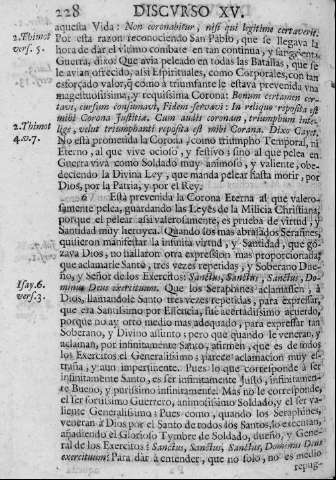 228 DISCVRSO XV.
aquesta Vida: Non coronabitur, nisi qui legitime certaverit.
2.Thimot vers. 5.
Por esta razon reconociendo San Pablo, que se llegava la
hora de dàr el vltimo combate en tan continua, y sangrienta
Guerra, dixo: Que avia peleado en todas las Batallas, que se
le avian ofrecido, assi Espirituales, como Corporales, con tan
esforçado valor, q̃ como à triumfante le estava prevenida vna
magestuosissima, y requissima Corona: Bonum certamen cer-
tavi, cursum consummavi, Fidem servavi: In reliquo reposita est
2.Thimot 4.v.7.
mihi Corona Justitiæ. Cum audis coronam, triumphum inte-
lige, velut triumphanti reposita est mihi Corona. Dixo Cayet.
No està promerida la Corona, como triumpho Temporal, ni
Eterno, al que vive ocioso, y festivo; sino al que pelea en
Guerra viva como Soldado muy animoso, y valiente, obe-
deciendo la Divina Ley, que manda pelear hasta morir, por
Dios, por la Patria, y por el Rey.
6 Està prevenida la Corona Eterna al que valero-
samente pelea, guardando las Leyes de la Milicia Christiana;
porque el pelear assi valerosamente, es prueba de virtud, y
Santidad muy heroyca. Quando los mas abrasados Serafines,
quisieron manifestar la infinita virtud, y Santidad, que go-
zava Dios, no hallaron otra expression mas proporcionada,
que aclamarle Santo, tres vezes repetidas, y Soberano Due-
ño, y Señor de los Exercitos: Sanctus, Sanctus, Sanctus, Do-
Isay.6. vers.3.
minus Deus exercituum. Que los Seraphines aclamassen, à
Dios, llamandole Santo tres vezes repetidas, para expressar,
que era Santissimo por Essencia, fue acertadissimo acuerdo,
porque no ay otro medio mas adequado, para expressar tan
Soberano, y Divino assunto; pero que quando le veneran, y
aclaman, por infinitamente Santo, afirmen, que es de todos
los Exercitos el Generalissimo; parece aclamacion muy es-
traña, y aun impertinente. Pues lo que corresponde à ser
infinitamente Santo, es ser infinitamente Justo, infinitamen-
te Bueno, y purissimo infinitamente: Mas no le corresponde,
el ser fortissimo Guerrero, animosissimo Soldado, y el ser va-
liente Generalissimo: Pues como, quando los Seraphines,
veneran à Dios por el Santo de todos los Santos, lo executan,
añadiendo el Glorioso Tymbre de Soldado, dueño, y Gene-
ral de los Exercitos: Sanctus, Sanctus, Sanctus, Dominus Deus
exercituum? Para dàr à entender, que no solo, no es medio
repug-